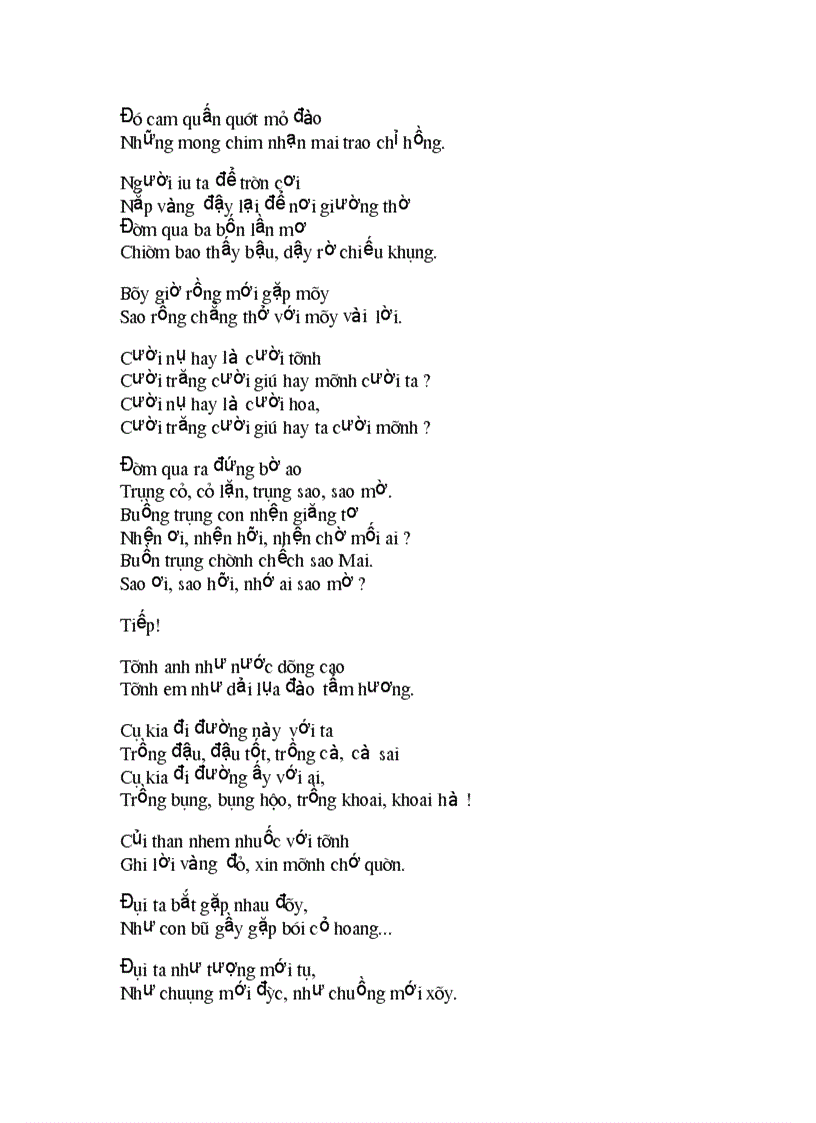 Đó cam quấn quớt mỏ đào
Những mong chim nhạn mai trao chỉ hồng.
Người iu ta để trờn cơi
Nắp vàng đậy lại để nơi giường thờ
Đờm qua ba bốn lần mơ
Chiờm bao thấy bậu, dậy rờ chiếu khụng.
Bõy giờ rồng mới gặp mõy
Sao rồng chẳng thở với mõy vài lời.
Cười nụ hay là cười tỡnh
Cười trăng cười giú hay mỡnh cười ta ?
Cười nụ hay là cười hoa,
Cười trăng cười giú hay ta cười mỡnh ?
Đờm qua ra đứng bờ ao
Trụng cỏ, cỏ lặn, trụng sao, sao mờ.
Buồng trụng con nhện giăng tơ
Nhện ơi, nhện hỡi, nhện chờ mối ai ?
Buồn trụng chờnh chếch sao Mai.
Sao ơi, sao hỡi, nhớ ai sao mờ ?
Tiếp!
Tỡnh anh như nước dõng cao
Tỡnh em như dải lụa đào tẩm hương.
Cụ kia đi đường này với ta
Trồng đậu, đậu tốt, trồng cà, cà sai
Cụ kia đi đường ấy với ai,
Trồng bụng, bụng hộo, trồng khoai, khoai hà !
Củi than nhem nhuốc với tỡnh
Ghi lời vàng đỏ, xin mỡnh chớ quờn.
Đụi ta bắt gặp nhau đõy,
Như con bũ gầy gặp bói cỏ hoang...
Đụi ta như tượng mới tụ,
Như chuụng mới đỳc, như chuồng mới xõy.